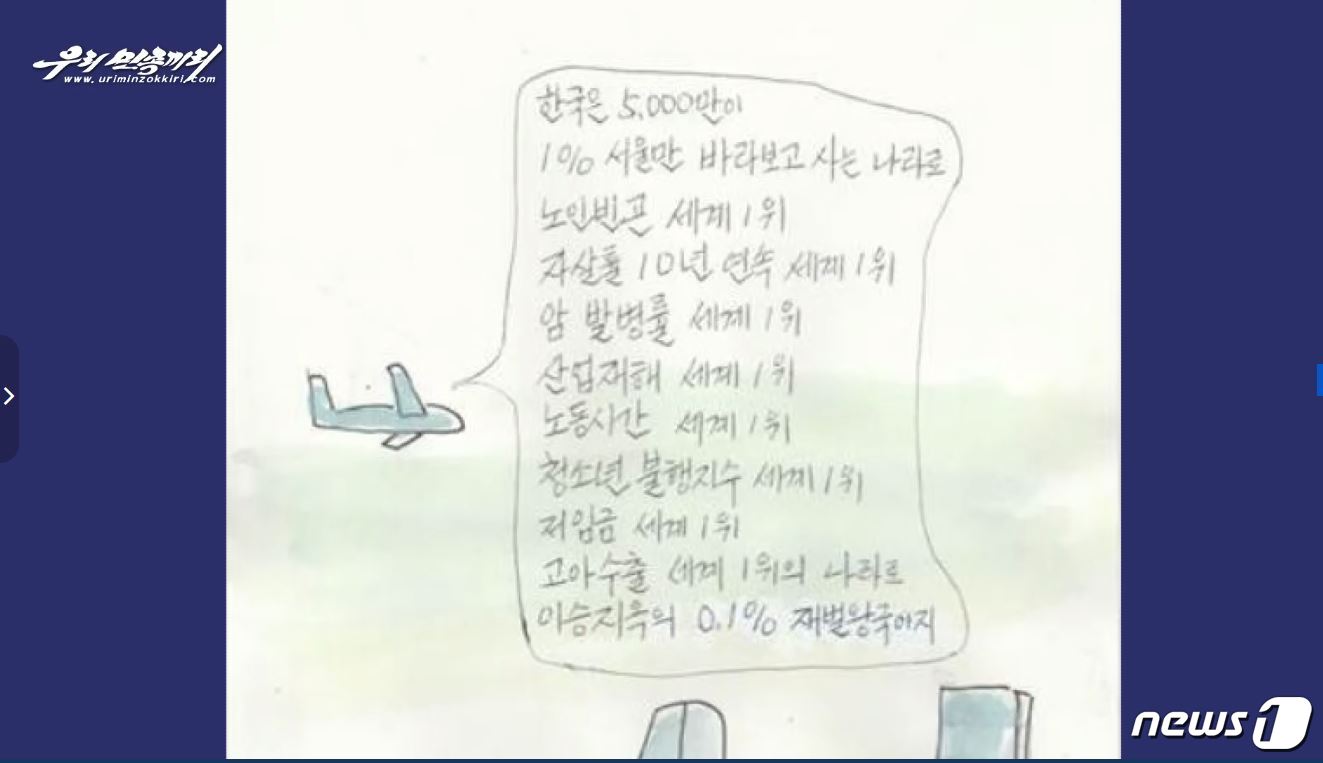 우리민족끼리
www.uriminzokkiri.com
한국은 5,000만이
1% 서울만 바라보고 사는 나라로
노인빈곤 세계 1위
자살률 10년 연속 세계 1위
암 발병률 세계 1위
산업재해 세계 1위
노동시간 세계 1위
청소년 불행지수 세계 1위
저임금 세계 1위
고아수출 세계 1위의 나라로
이승지옥의 0.1% 재벌왕국이지
news1